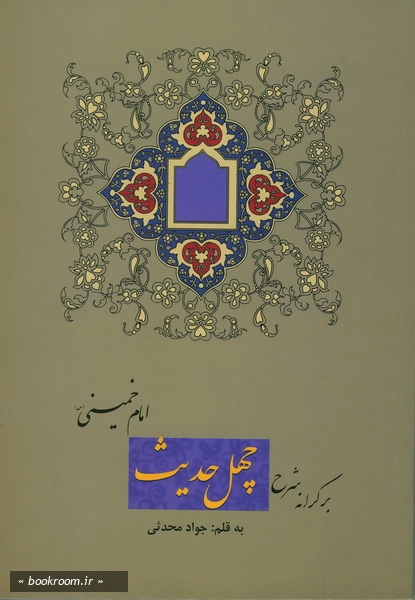 بر کرانه شرح
چهل حدیث
امام خمینی (س)
به قلم: جواد محدثی
« bookroom.ir »